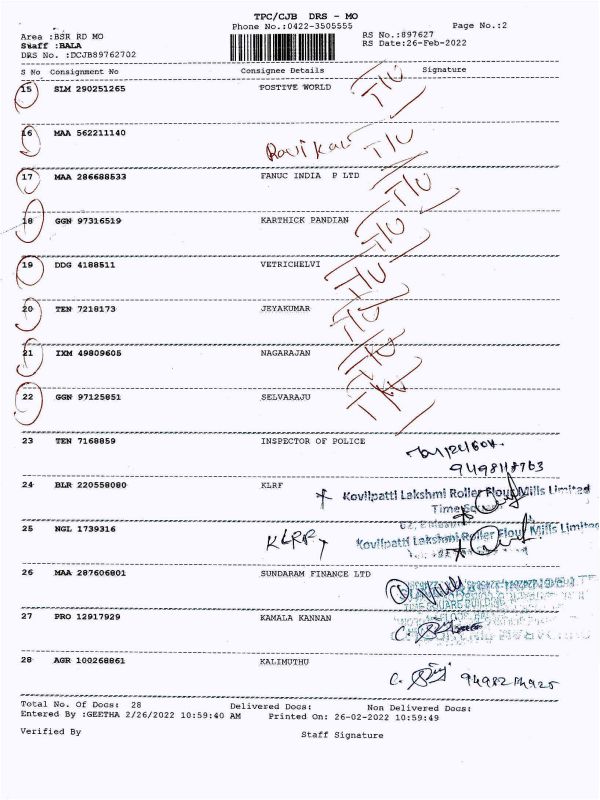 TPC/CJB DRS - MO
Phone No.:0422-3505555 Page No.:2
Area :BSR RD MO RS No.:897627
Staff :BALA RS Date:26-Feb-2022
DRS No. :DCJB89762702
S No Consignment No Consignee Details Signature
15 SLM 290251265 POSTIVE WORLD T/U
16 MAA 562211140 T/U
17 MAA 286688533 FANUC INDIA P LTD T/U
18 GGN 97316519 KARTHICK PANDIAN T/U
19 DDG 4188511 VETRICHELVI T/U
20 TEN 7218173 JEYAKUMAR T/U
21 IXM 49809605 NAGARAJAN T/U
22 GGN 97125851 SELVARAJU
23 TEN 7168859 INSPECTOR OF POLICE
24 BLR 220558080 KLRF
Kovilpatti Lakshmi Roller Flour Mills Limited
25 NGL 1739316 KLRF
Kovilpatti Lakshmi Roller Flour Mills Limited
26 MAA 287606801 SUNDARAM FINANCE LTD
TIME SQUARE BUILDING
27 PRO 12917929 KAMALA KANNAN
28 AGR 100268861 KALIMUTHU
Total No. Of Docs: 28 Delivered Docs: Non Delivered Docs:
Entered By :GEETHA 2/26/2022 10:59:40 AM Printed On: 26-02-2022 10:59:49
Verified By Staff Signature